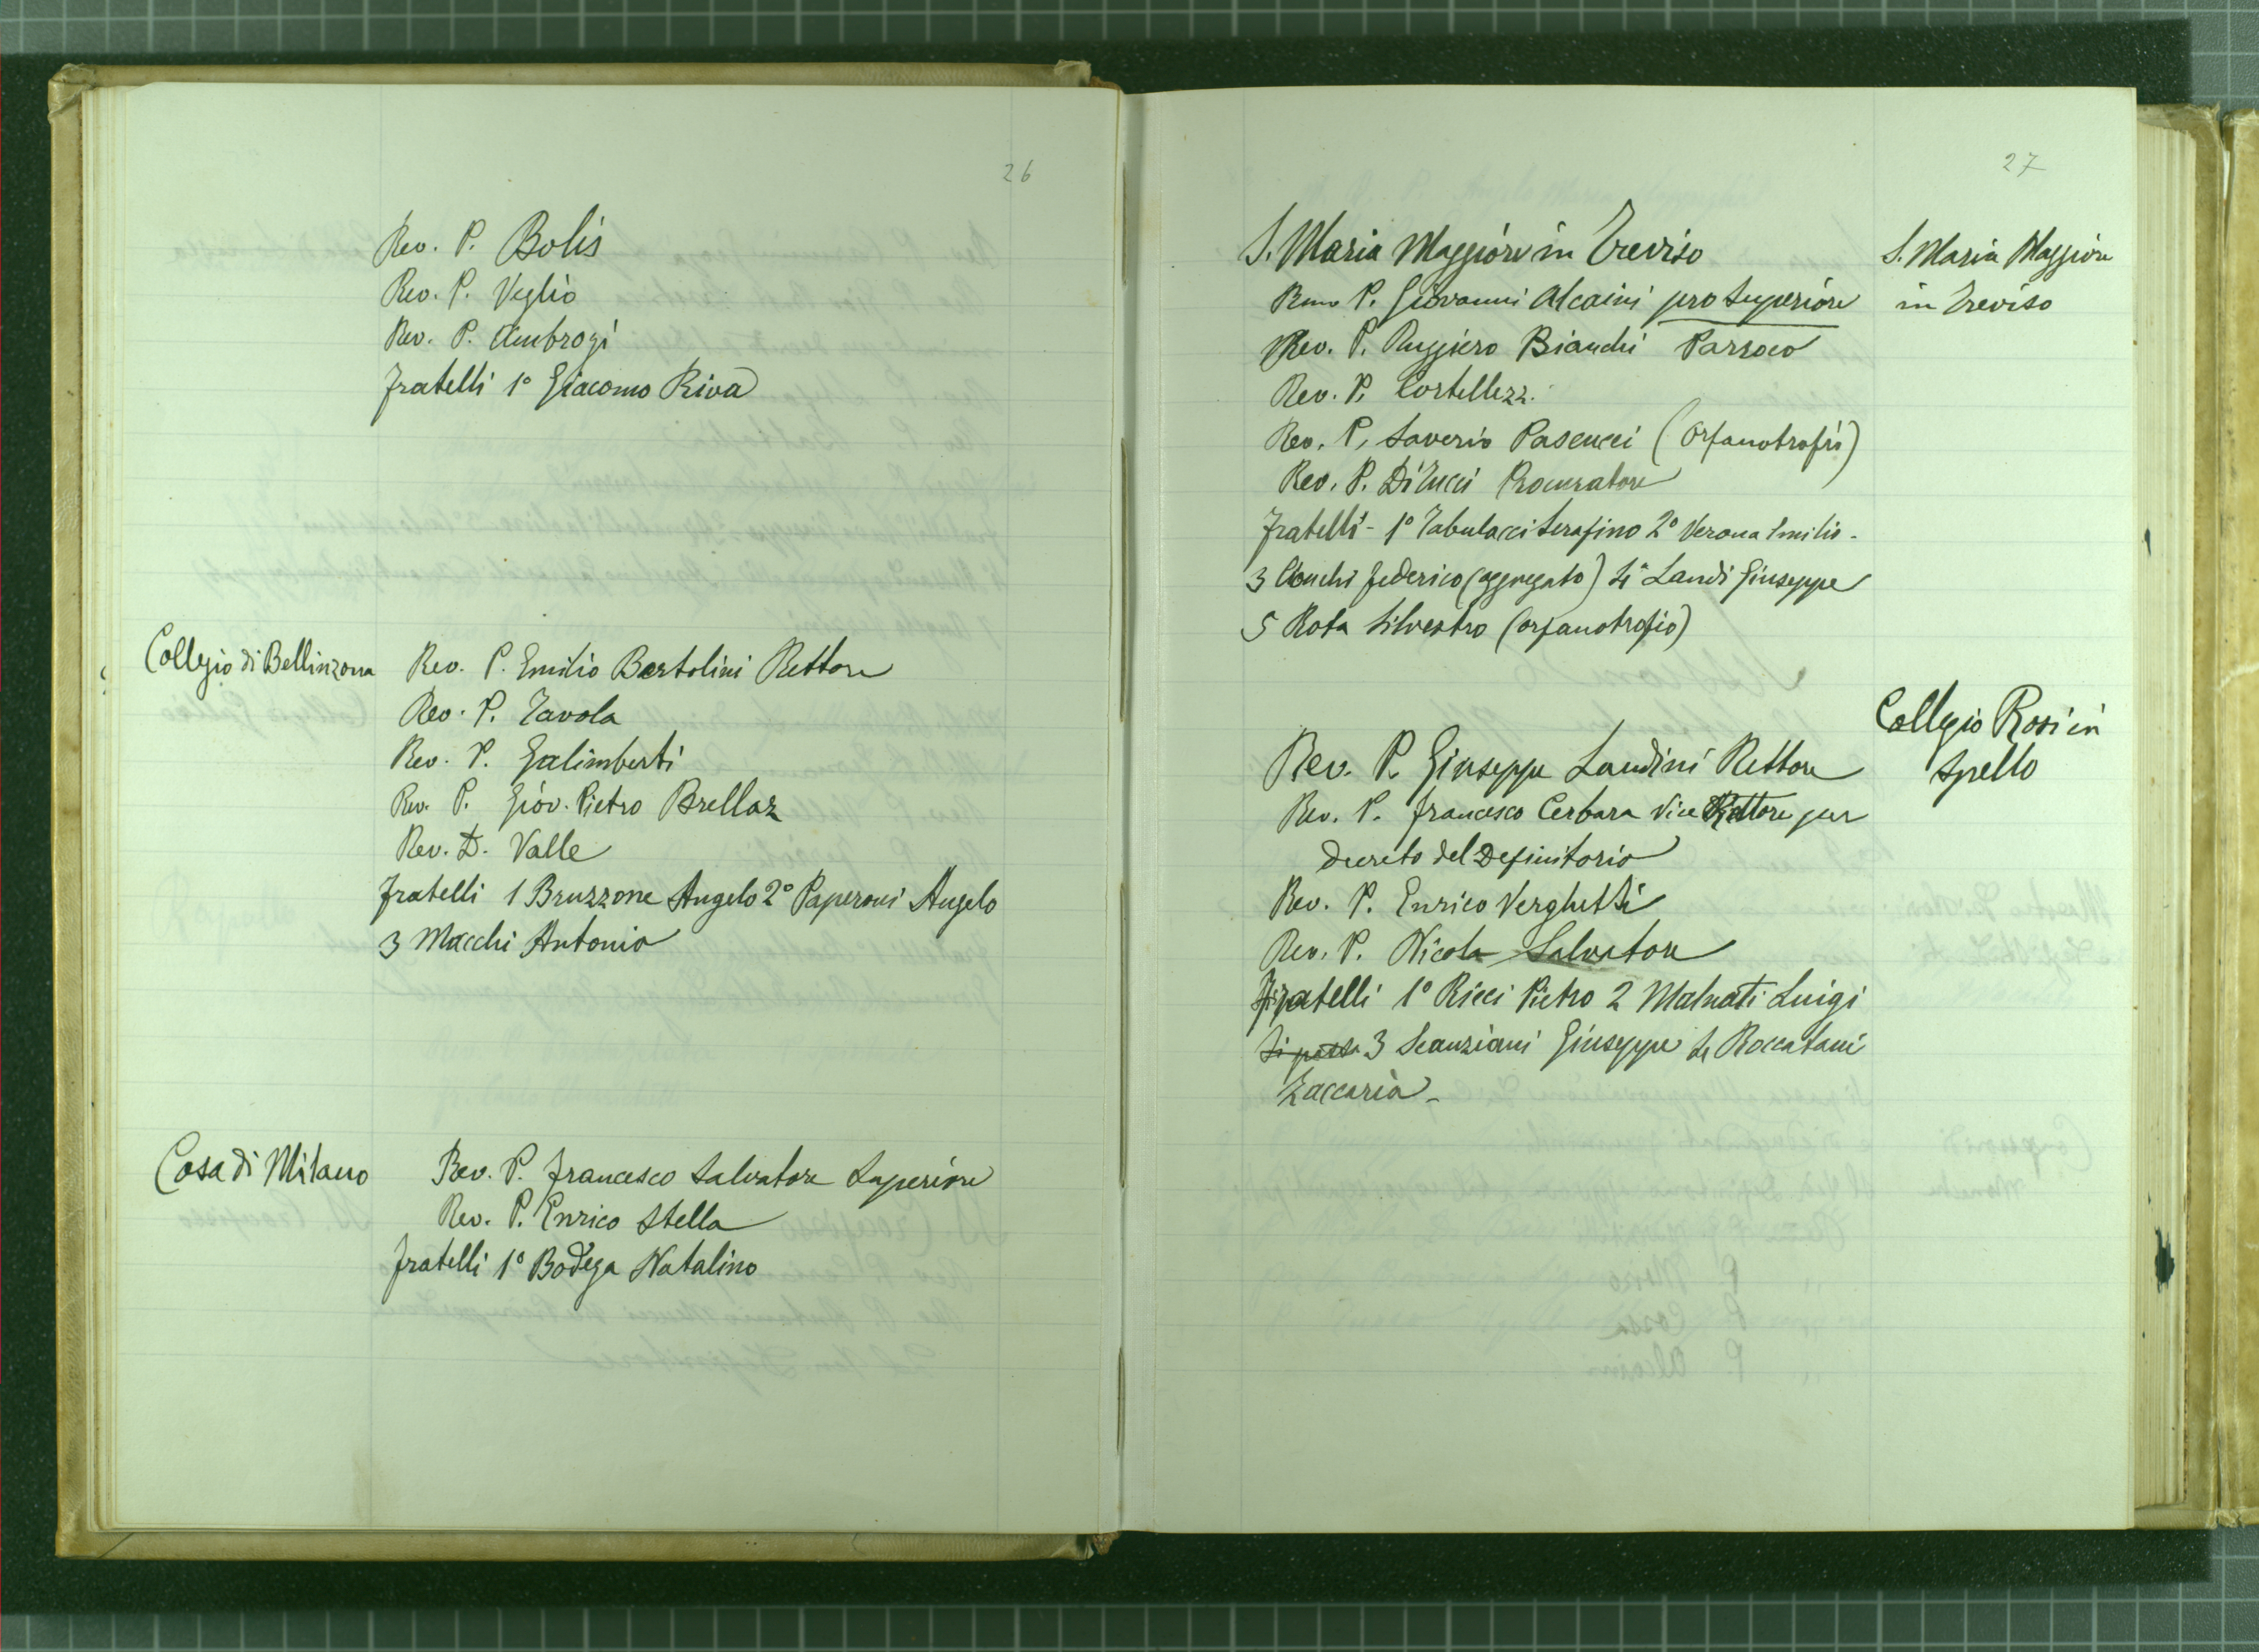 26
Rev. P. Bolis
Rev. P. Veglio
Rev. P. Ambrogi
Fratelli 1° Giacomo Riva
Collegio di Bellinzona
Rev. P. Emilio Bertolini Rettore
Rev. P. Tavola
Rev. P. Galimberti
Rev. P. Giov. Pietro Brellaz
Rev. D. Valle
Fratelli 1 Bruzzone Angelo 2° Paperoni Angelo
3 Macchi Antonio
Casa di Milano
Rev. P. Francesco Salvatore Superiore
Rev. P. Enrico Stella
Fratelli 1° Bodega Natalino
27
S. Maria Maggiore in Treviso
S. Maria Maggiore
in Treviso
Rmo P. Giovanni Alcaini pro Superiore
Rev. P. Ruggiero Bianchi Parroco
Rev. P. Cortellezz.
Rev. P. Saverio Pascucci (Orfanotrofio)
Rev. P. Di Tucci Procuratore
Fratelli - 1° Tabulacci Serafino 2° Verona Emilio -
3 Federico (aggregato) 4° Landi Giuseppe
5 Rota Silvestro (orfanotrofio)
Collegio Rosi in
Spello
Rev. P. Giuseppe Landini Rettore
Rev. P. Francesco Cerbara Vice Rettore per
decreto del Definitorio
Rev. P. Enrico Verghetti
Rev. P. Nicola Salvatore
Fratelli 1° Ricci Pietro 2 Malnati Luigi
3 Scanziani Giuseppe 4 Roccatani
Zaccaria -